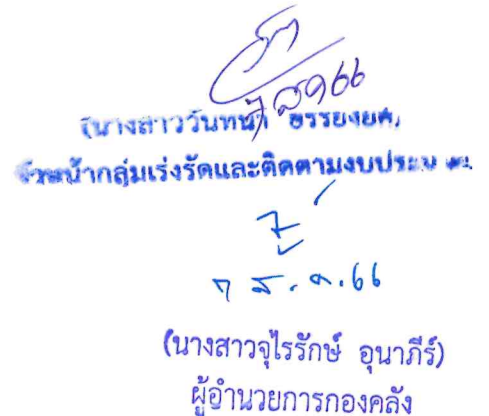 ส.ค. 66
(นางสาววันทนา อรรยงยศ)
หัวหน้ากลุ่มเร่งรัดและติดตามงบประมาณ
ส.ค. 66
(นางสาวจุไรรักษ์ อุนาภีร์)
ผู้อำนวยการกองคลัง